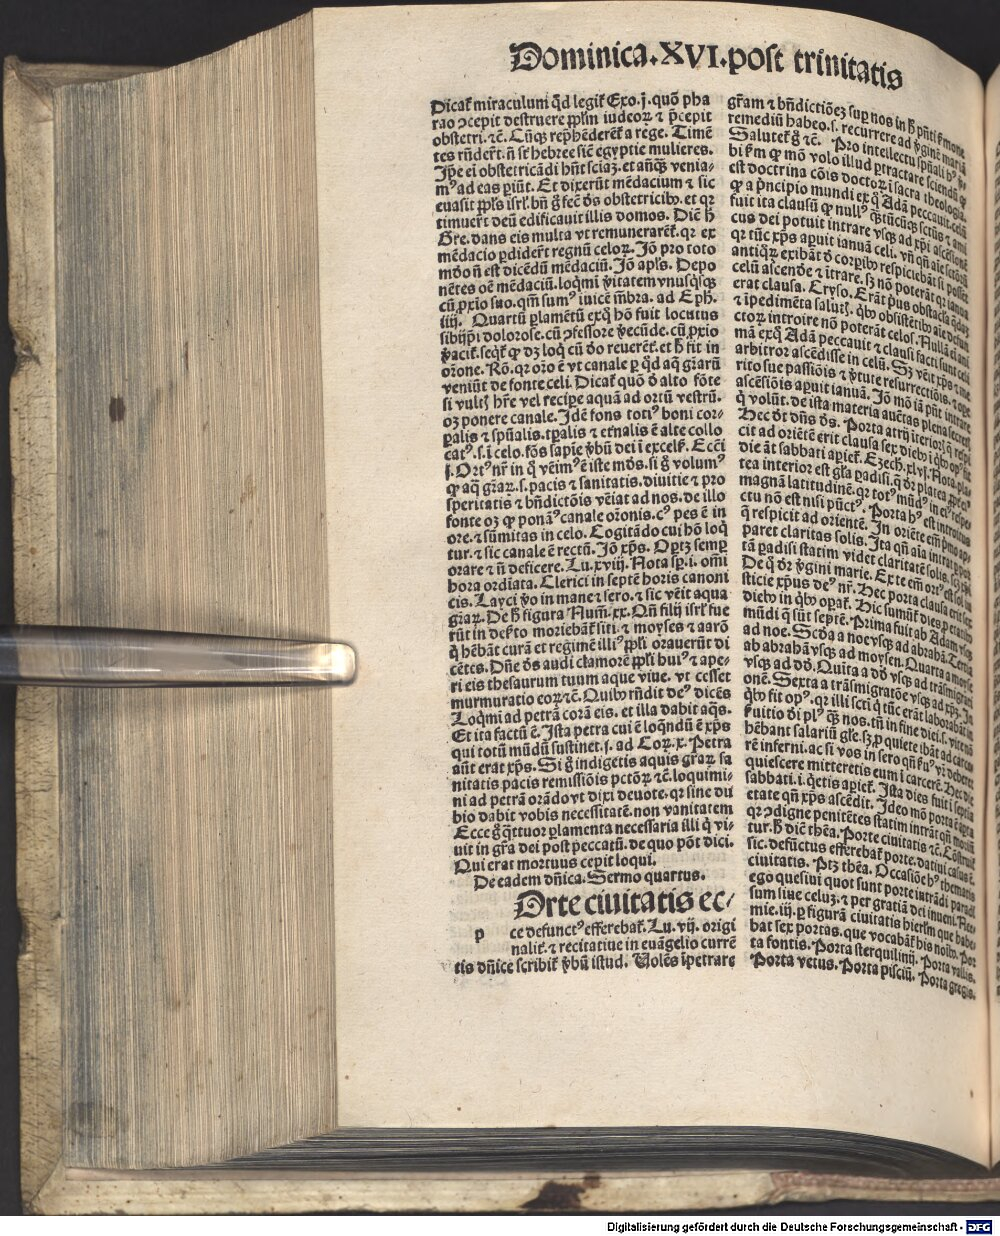 Dominica.XVI.post trinitatis
Dicat᷑ miraculum q̄d legit᷑ Exo.j.quō pha
rao ↄcepit destruere ppl̄m iudeoꝝ ⁊ p̄cepit
obstetri.⁊c̄. Cūqꝫ rep̄hēderēt᷑ a rege. Timē
tes rn̄dert̄.n̄ st᷑ hebree sic̄ egyptie mulieres.
Ip̄e ei obstetricādi hn̄t sciaꝫ.et anq̄ꝫ venia-
mꝰ ad eas piūt. Et dixerūt mēdacium ⁊ sic
euasit ppl̄s isrl̄.bn̄ g̊ fec̄ ds̄ obstetricibꝰ.et qꝛ
timuer̄t deū edificauit illis domos. Dic̄ h̄
Gre.dans eis multa vt remunerarēt᷑.qꝛ ex
mēdacio ꝑdider̄t regnū celoꝝ. Jō pro toto
mōo n̄ est dicēdū mēdaciū. Jō apl̄s. Depo
nētes oē mēdaciū.loqm̄i v̄itatem vnusqsqꝫ
cū ꝓxio suo.qm̄ sumꝰ iuicē mb̄ra. ad Eph.
iiij. Quartū ꝑlamētū exq̄ hō fuit locutus
sibijp̄i dolorose.cū ↄfessore v̄ecūde.cū ꝓxio
v̄acit᷑.seqt᷑ ꝙ dꝫ loq̄ cū dō reuerēt᷑.et h̄ fit in
orōne. Rō.qꝛ orō ē vt canale ꝑ q̄d aq̄ graꝝ
veniūt de fonte celi. Dicat᷑ quō d̄ alto fōte
si vultꝫ hr̄e vel recipe aquā ad ortū vestrū.
oꝫ ponere canale. Idē fons totiꝰ boni cor-
ꝑalis ⁊ spūalis.tꝑalis ⁊ et̄nalis ē alte collo
catꝰ.s.i celo. fōs sapie v̄bū dei i excels᷑. Ecci
j. Ortꝰ nr̄ in q̄ vēimꝰ ē iste mōs. si g̊ volumꝰ
ꝙ aq̄ graꝝ.s.pacis ⁊ sanitatis.diuitie ⁊ pro
speritatis ⁊ bn̄dictōis vēiat ad nos.de illo
fonte oꝫ ꝙ ponāꝰ canale orōnis.cꝰ pes ē in
ore.⁊ sūmitas in celo. Cogitādo cui hō loq̄
tur.⁊ sic canale ē rectū. Jō xp̄s. Optꝫ semꝑ
orare ⁊ n̄ deficere. Lu.xviij. Nota sp̄.i.om̄i
hora ordīata. Clerici in septē horis canoni
cis. Layci v̄o in mane ⁊ sero.⁊ sic vēit aqua
graꝝ. De h̄ figura Nume᷑.xx. Qn̄ filij isrl̄ fue
rūt in deẜto moriebāt᷑ siti.⁊ moyses ⁊ aarō
q̄ hēbāt curā et regimē illiꝰ ppl̄i orauerūt di
cētes. Dn̄e ds̄ audi clamorē ppl̄i huiꝰ ⁊ ape-
ri eis thesaurum tuum aque viue. vt cesset
murmuratio eoꝝ ⁊c̄. Quibꝰ rn̄dit deꝰ dicēs
Loqm̄i ad petrā corā eis. et illa dabit aq̄s.
Et ita factū ē. Ista petra cui ē loqn̄dū ē xp̄s
qui totū mūdū sustinet.j. ad Coꝝ.x. Petra
aūt erat xp̄s. Si g̊ indigetis aquis graꝝ sa
nitatis pacis remissiōis pctōꝝ ⁊c̄.loquimi-
ni ad petrā orādo vt dixi deuote.qꝛ sine du
bio dabit vobis necessitatē.non vanitatem
Ecce g̊ q̄ttuor ꝑlamenta necessaria illi q̄ vi-
uit in gr̄a dei post peccatū.de quo pōt dici.
Qui erat mortuus cepit loqui.
De eadem dn̄ica. Sermo quartus.
Orte ciuitatis ec-
p ce defunctꝰ efferebat᷑. Lu.vij. origi
nalit᷑.⁊ recitatiue in euāgelio curre
tis dn̄ice scribit᷑ v̄bū istud. Volēs īpetrare
gr̄am ⁊ bn̄dictiōeꝫ suꝑ nos in h̄ pn̄ti s᷑mone
remediū habeo.s. recurrere ad v̄ginē mariā
Salutet᷑ g̊ ⁊c̄. Pro intellectu spūali hꝰ v̄
bi s᷑m ꝙ mō volo illud ꝑtractare sciendū ꝙ
est doctrina cōis doctoꝝ i sacra theologia.
ꝙ a p̄ncipio mundi ex q̄ Adā peccauit.celū
fuit ita clausū ꝙ nullꝰ q̄tūcūqꝫ sctūs ⁊ ami
cus dei potuit intrare vsqꝫ ad xp̄i ascēsionē
qꝛ tūc xp̄s aꝑuit ianuā celi. vn̄ qn̄ aīe sctōꝝ
antiq̄ꝝ exibāt d̄ corꝑibꝰ respiciebāt si possēt
celū ascende ⁊ ītrare. sꝫ nō poterāt qꝛ ianua
erat clausa. Cryso. Erāt p̄us obstacla q̄daꝫ
⁊ ipedimēta salutꝫ. q̄bꝰ obsistētibꝰ aīe defun
ctoꝝ introire nō poterāt celos. Nullā ei ani
mā exq̄ Adā peccauit ⁊ clausi facti sunt celi
arbitror ascēdisse in celū. Sꝫ vēit xp̄s ⁊ me
rito sue passiōis ⁊ v̄tute resurrectiōis.⁊ ope
ascēsiōis aꝑuit ianuā. Jō mō iā pn̄t intrare
q̄ volūt. de ista materia auc̄tas plena secret
Hec dt̄ dn̄s ds̄. Porta atrij iterioꝝ q̄ respi
cit ad oriētē erit clausa sex diebꝰ i q̄bꝰ opꝰ fit
die āt sabbati apiet᷑. Ezech.xlvj. Nota. pla-
tea interior est gl̄a ꝑadisi. q̄ dr̄ platea ꝓpt᷑ eiꝰ
magnā latitudinē. qꝛ totꝰ mūdꝰ in eiꝰ respe
ctu nō est nisi pūctꝰ. Porta hꝰ est introitus
q̄ respicit ad orientē. In oriēte em̄ p̄mo ap-
paret claritas solis. Ita qn̄ aīa intrat ꝑ por
tā ꝑadisi statim videt claritatē solis.sꝫ xp̄i
De q̄ dr̄ v̄gini marie. Ex te em̄ ortꝰ est sol iu
sticie xp̄us deꝰ nr̄. Hec porta clausa erit sex
diebꝰ in q̄bꝰ opat᷑. Hic sumūt᷑ dies ꝑ etatibꝰ
mūdi q̄ sūt septē. Prima fuit ab Adam vsqꝫ
ad noe. Scd̄a a noe vsqꝫ ad abrahā. Tertia
ab abrahā vsqꝫ ad moysen. Quarta a moyse
vsqꝫ ad dō. Quīta a dō vsqꝫ ad trāsmigrati
onē. Sexta a trāsmigratōe vsqꝫ ad xp̄ꝫ. In
q̄bꝰ fit opꝰ. qꝛ illi scti q̄ tūc erāt laborabāt in
ẜuitio dī plꝰ q̄ꝫ nos. tn̄ in fine diei.s.vite nō
hēbant salariū gl̄e.sꝫ ꝓ quiete ibāt ad carce
rē inferni. ac si vos in sero qn̄ ẜuꝰ vr̄ deberet
quiescere mitteretis eum i carcerē. Hec die
sabbati.i.q̄etis apiet᷑. Ista dies fuit i septīa
etate qn̄ xp̄s ascēdit. Ideo mō porta ē apta
qꝛ ↄdigne penitētes statim intrāt qn̄ moriū
tur. h̄ dic̄ thēa. Porte ciuitatis ⁊c̄. Cōstrue
sic.defūctus efferebat᷑ porte. datiui casus ē.
ciuitatis. Ptꝫ thēa. Occasiōe hꝰ thematis
ego quesiui quot sunt porte intrādi paradi
sum siue celuꝫ.⁊ per gratiā dei inueni. Nee-
mie.iij. ꝑ figurā ciuitatis hierlm̄ que habe-
bat sex portas. que vocabāt᷑ his noībꝰ. Por
ta fontis. Porta sterquilinij. Porta vallis.
Porta vetus. Porta pisciū. Porta gregis.
Digitalisierung gefördert durch die Deutsche Forschungsgemeinschaft - DFG